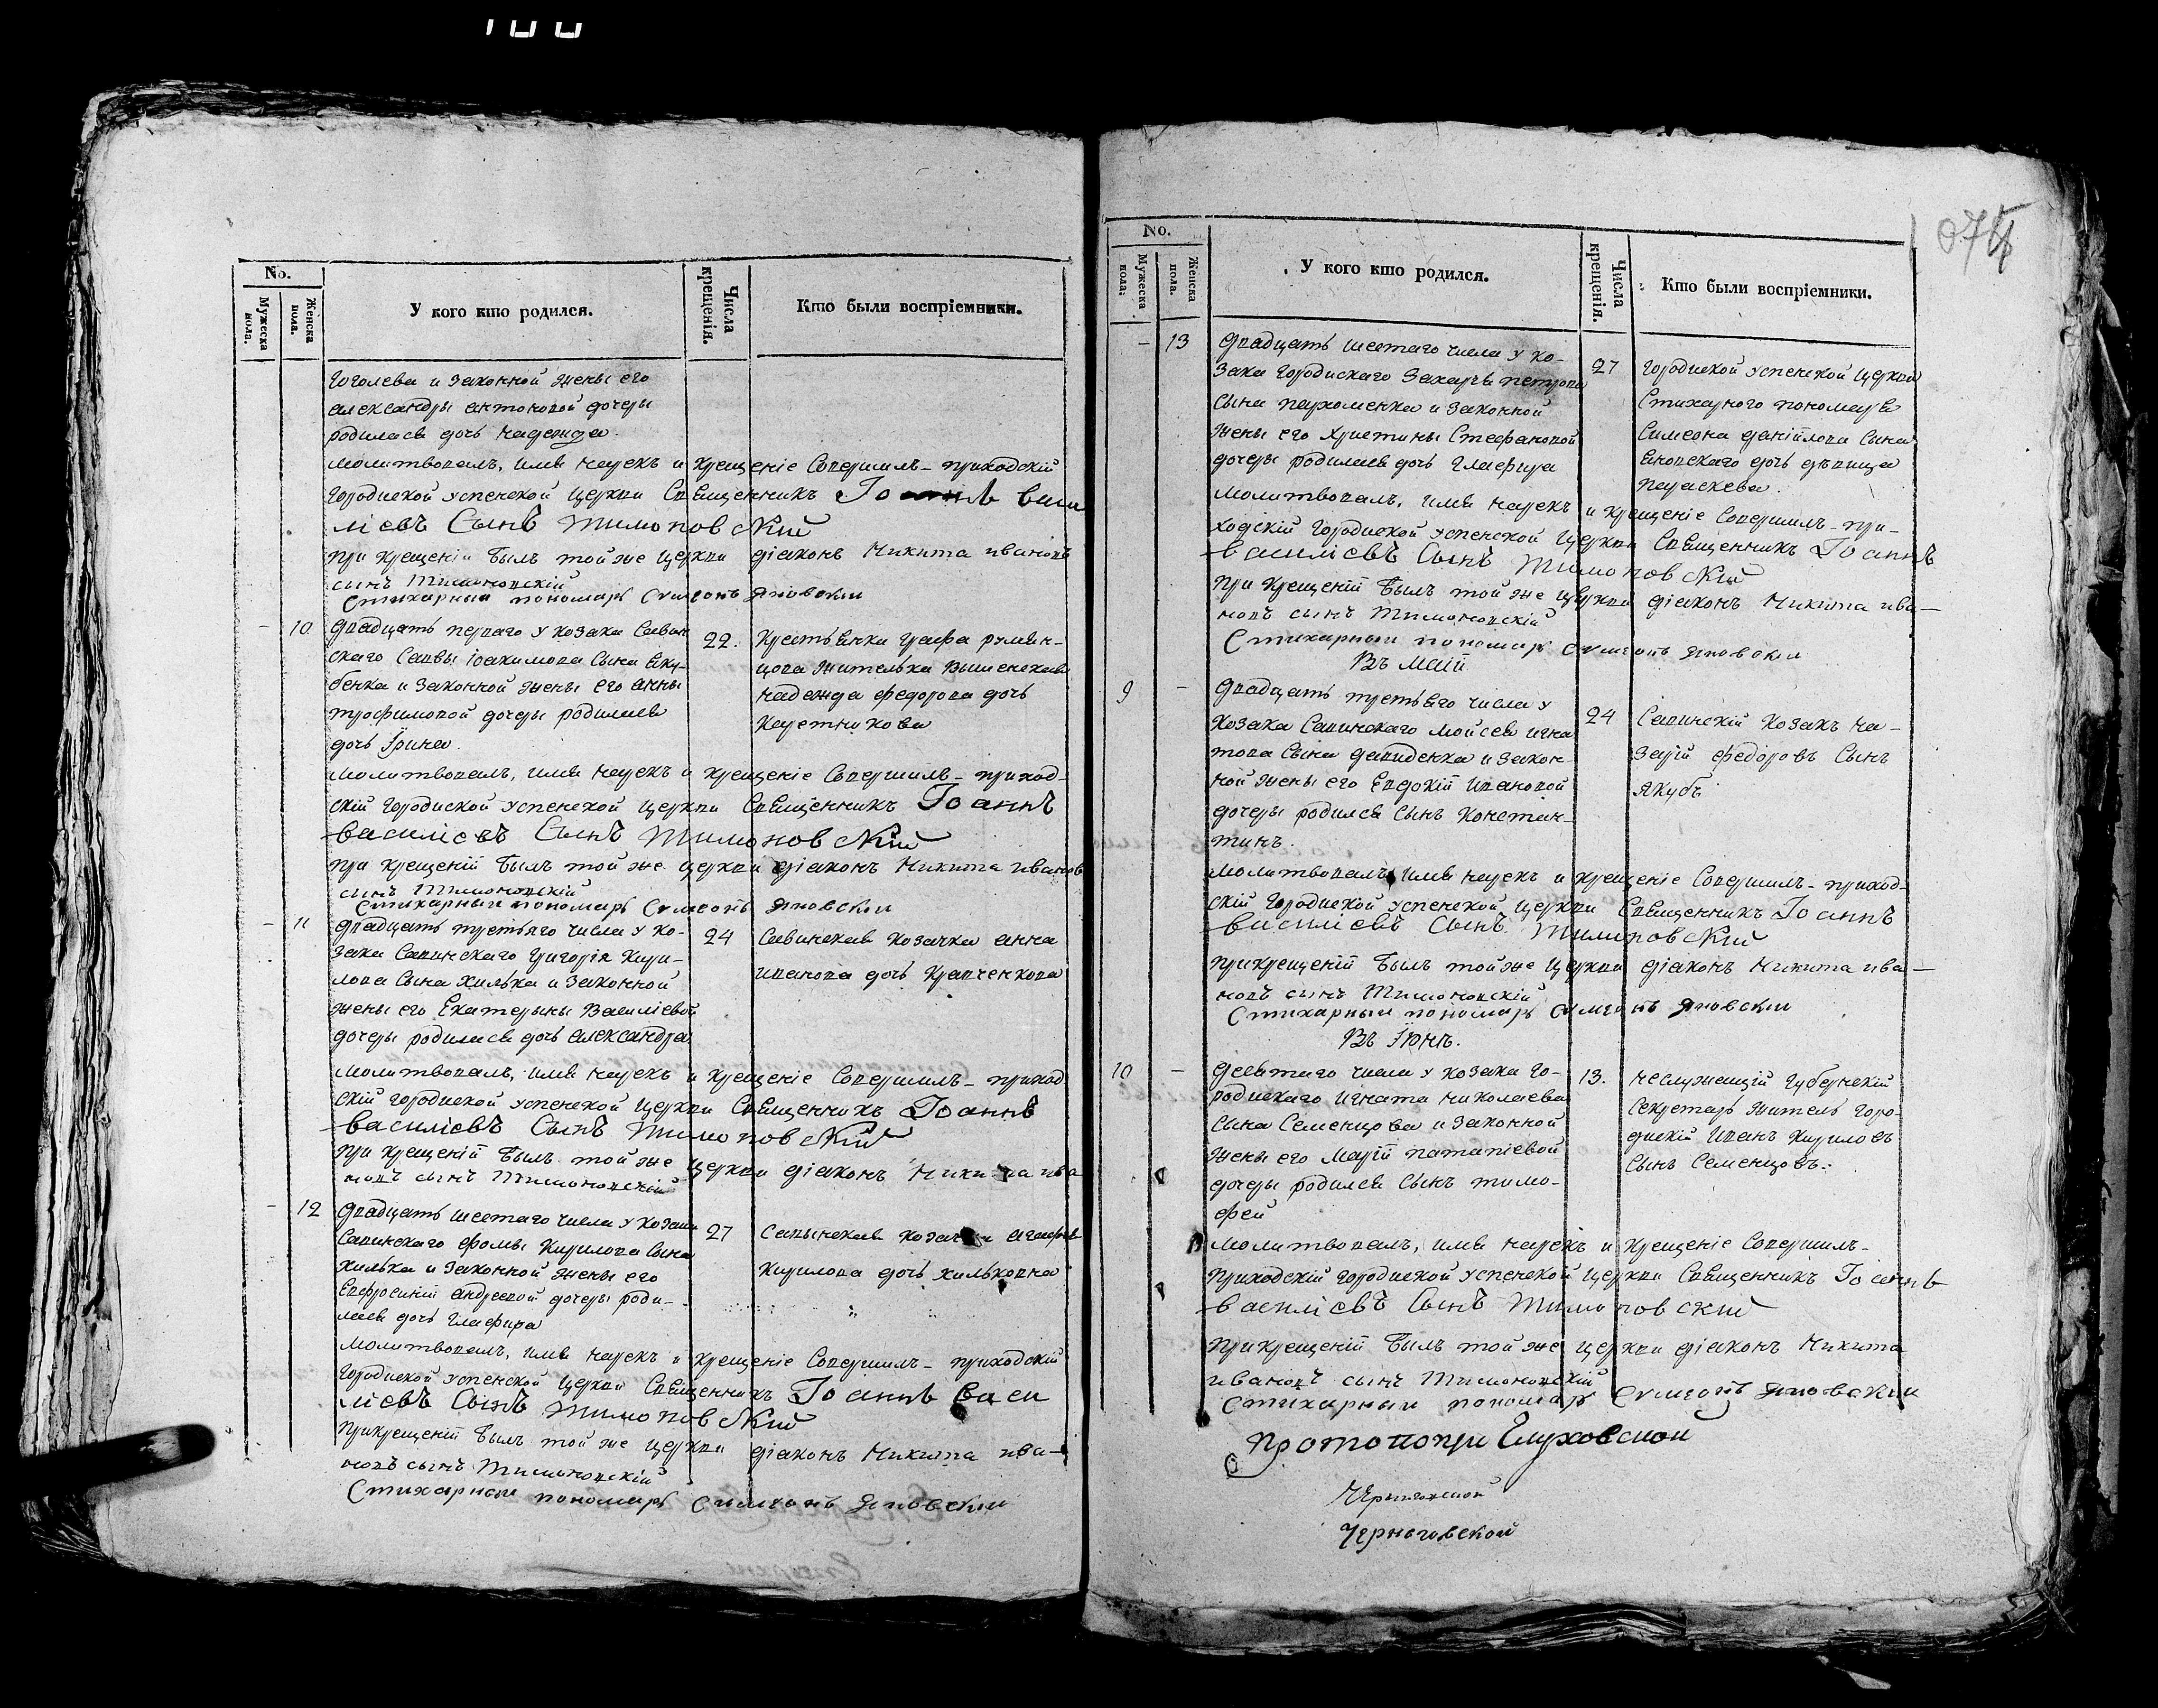 No.
Мужеска пола.
Женска пола.
У кого кто родился.
Числа крещенія.
Кто были воспріемники.
Гоголева и законной жены его
александры антоновой дочеры
родилась дочь надежда.
молитвовалъ, имя нарекъ и крещеніе Совершилъ - приходскій
городиской успенской церкви Священникъ Іоаннъ васи
ліевъ Сынъ Тимоновскій
при крещеніи былъ той же церкви діаконъ Никита ивановъ
сынъ Тимоновскій
Стихарный пономаръ Симеонъ Яновский
- 10 двадцать перваго у козака Савин
скаго Саввы іоакимова Сына Яку-
бенка и законной жены его анны
трофимовой дочеры родилась
дочь Ірина.
22. Крестьянки графа румян-
цова жителька Вишенская
надежда федорова дочь
Каретникова
молитвовалъ, имя нарекъ и крещеніе Совершилъ - приход-
скій городиской успенской церкви Священникъ Іоаннъ
василіевъ Сынъ Тимоновскій
при крещеніи былъ той же церкви діаконъ Никита иванов
сынъ Тимоновскій
Стихарный пономаръ Симеонъ Яновский
- 11 двадцать третьяго числа у ко-
зака Савинскаго Григорія Кири-
лова Сына Хилька и законной
жены его Екатерыны Василіевой
дочеры родилась дочь александра
24 Савинская козачка анна
иванова дочь Кравченкова
молитвовалъ, имя нарекъ и крещеніе Совершилъ - приход
скій городиской успенской церкви Священникъ Іоаннъ
василіевъ Сынъ Тимоновскій
при крещеніи былъ той же церкви діаконъ Никита ива
новъ сынъ Тимоновскій
- 12 двадцать шестаго числа у козака
Савинскаго фомы Кирилова Сына
Хилька и законной жены его
Евфросиніи андреевой дочеры роди-
лась дочь глафира
27 Савынская козачка агафія
Кирилова дочь хильковна
молитвовалъ, имя нарекъ и крещеніе Совершилъ - приходскій
городиской успенской церкви Священникъ Іоаннъ васи
ліевъ Сынъ Тимоновскій
при крещеніи былъ той же церкви діаконъ Никита ива-
новъ сынъ Тимоновскій
Стихарный пономаръ Симеонъ Яновский
No.
Мужеска пола.
Женска пола.
У кого кто родился.
Числа крещенія.
Кто были воспріемники.
- 13 двадцать шестаго числа у ко-
зака городискаго Захарья петрова
сына пархоменка и законной
жены его Христины Стефановой
дочеры родилась дочь глафира
27 городиской успенской церкви
Стихарного пономаря
Симеона даніилова Сына
Яновскаго дочь дѣвица
параскева.
молитвовалъ, имя нарекъ и крещеніе Совершилъ - при-
ходскій городиской успенской церкви Священникъ Іоаннъ
василіевъ Сынъ Тимоновскій
при крещеніи былъ той же церкви діаконъ Никита ива-
новъ сынъ Тимоновскій
Стихарный пономаръ Симеонъ Яновский
Въ маіи
9 - двадцать третьяго числа у
козака Савинскаго мойсея игна
това Сына давиденка и закон-
ной жены его Евдокіи ивановой
дочеры родился Сынъ констан-
тинъ.
24 Савинскій козакъ на-
зарій федоровъ Сынъ
Якубъ
молитвовалъ, имя нарекъ и крещеніе Совершилъ - приход-
скій городиской успенской церкви Священникъ Іоаннъ
василіевъ Сынъ Тимоновскій
при крещеніи былъ той же церкви діаконъ Никита ива-
новъ сынъ Тимоновскій
Стихарный пономаръ Симеонъ Яновский
Въ Іюнѣ.
10 - девятаго числа у козака го-
родискаго игната николаева
сына Семенцова и законной
жены его маріи патапіевой
дочеры родился Сынъ тимо-
фей
13. неслужащій губернскій
Секретаръ житель горо-
дискій иванъ Кириловъ
сынъ Семенцовъ.
молитвовалъ, имя нарекъ и крещеніе Совершилъ -
приходскій городиской успенской церкви Священникъ Іоаннъ
василіевъ Сынъ Тимоновский
при крещеніи былъ той же церкви діаконъ Никита
ивановъ сынъ Тимоновскій
Стихарный пономаръ Симеонъ Яновский
протопопіи Глуховской
Черниговской